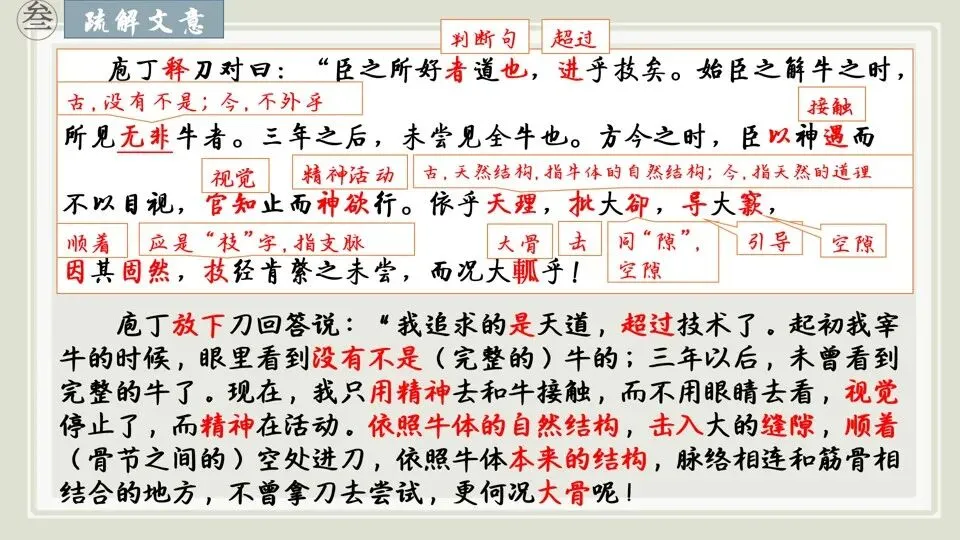 叁 疏解文意
判断句 超过
庖丁释刀对曰：“臣之所好者道也，进乎技矣。始臣之解牛之时，
古，没有不是；今，不外乎 接触
所见无非牛者。三年之后，未尝见全牛也。方今之时，臣以神遇而
视觉 精神活动 古，天然结构，指牛体的自然结构；今，指天然的道理
不以目视，官知止而神欲行。依乎天理，批大郤，导大窾，
顺着 应是“枝”字，指支脉 大骨 去 同“隙”，空隙 引导 空隙
因其固然，技经肯綮之未尝，而况大軱乎！
庖丁放下刀回答说：“我追求的是天道，超过技术了。起初我宰
牛的时候，眼里看到没有不是（完整的）牛的；三年以后，未曾看到
完整的牛了。现在，我只用精神去和牛接触，而不用眼睛去看，视觉
停止了，而精神在活动。依照牛体的自然结构，击入大的缝隙，顺着
（骨节之间的）空处进刀，依照牛体本来的结构，脉络相连和筋骨相
结合的地方，不曾拿刀去尝试，更何况大骨呢！